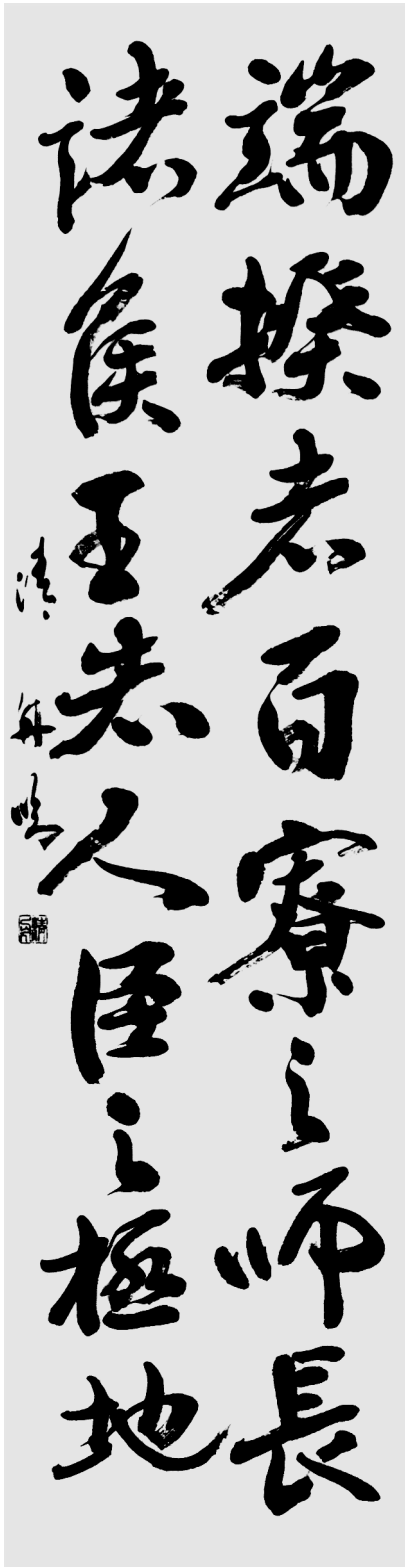 端揆者百寮之師長
諸侯王者人臣之極地
清